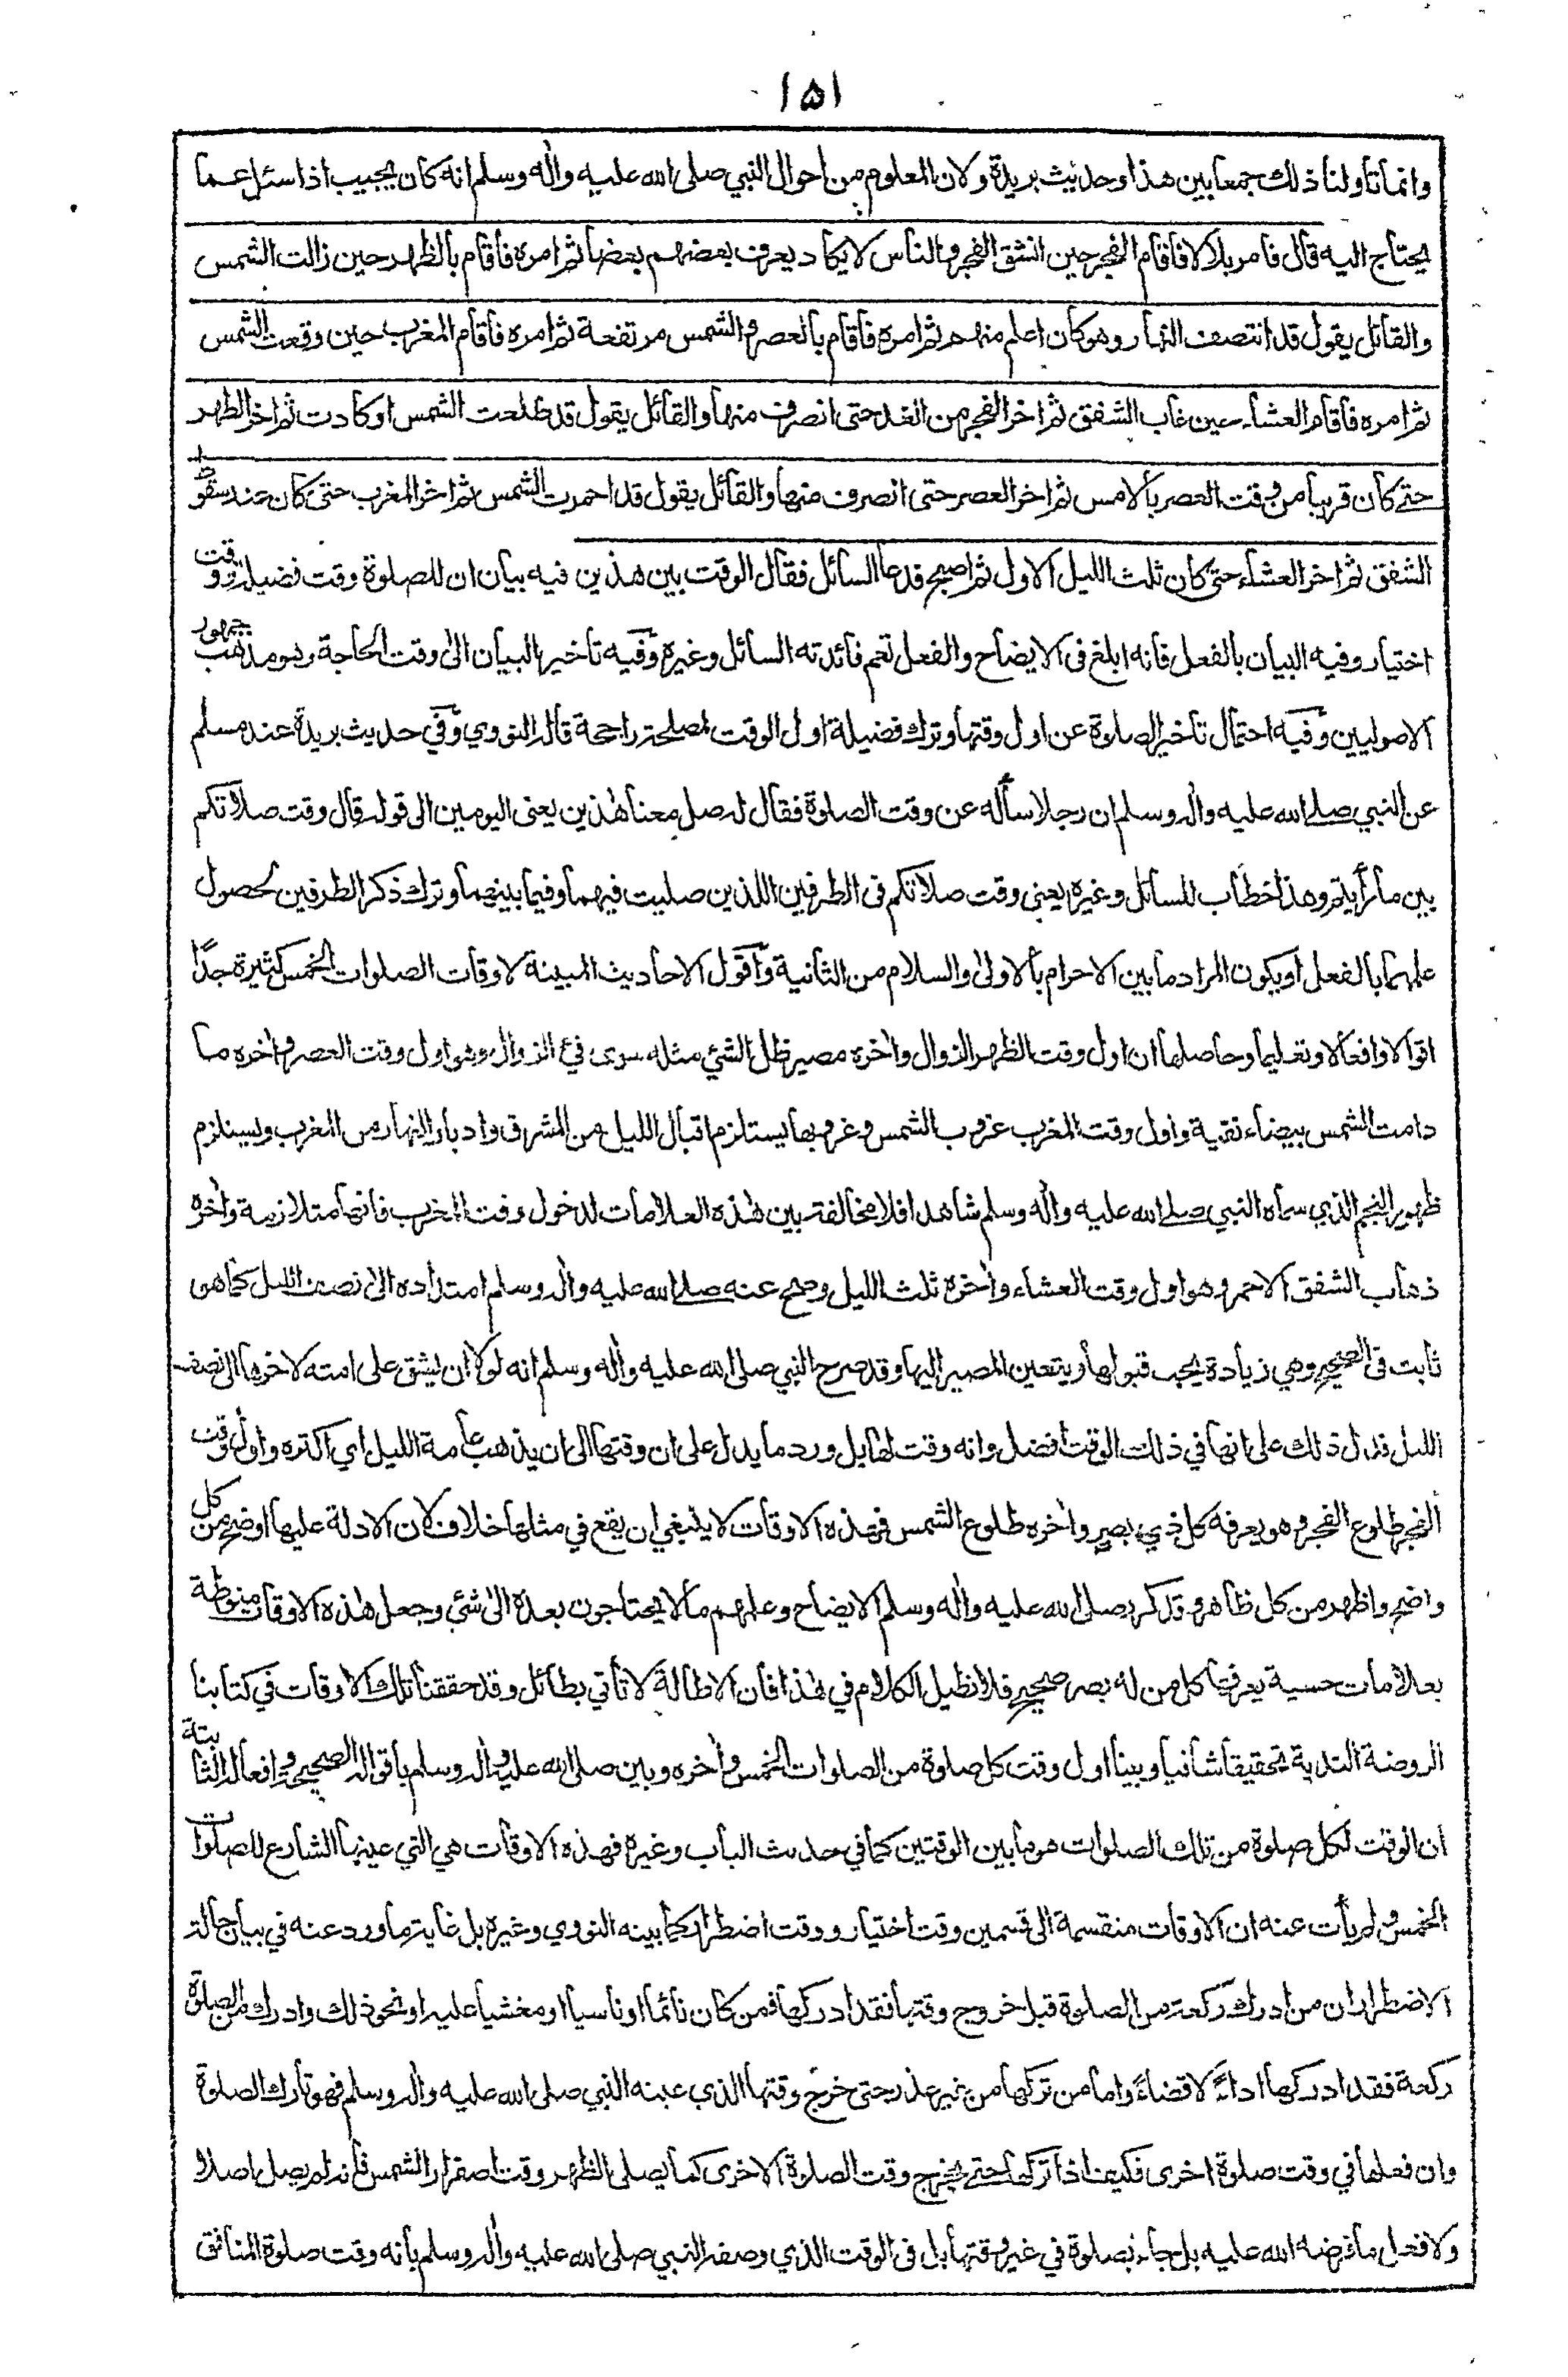 ١٥١
وانما تأولنا ذلك جمعا بين هذا وحديث بريدة ولان المعلوم من احوال النبي صلى الله عليه واٰله وسلم انه كان يجيب اذا سئل عما
يحتاج اليه قال فامر بلالا فاقام الفجر حين انشق الفجر والناس لا يكاد يعرف بعضهم بعضا ثم امره فاقام بالظهر حين زالت الشمس
والقائل يقول قد انتصف النهار وهو كان اعلم منهم ثم امره فاقام بالعصر والشمس مرتفعة ثم امره فاقام المغرب حين وقعت الشمس
ثم امره فاقام العشاء حين غاب الشفق ثم اخر الفجر من الغد حتى انصرف منها والقائل يقول قد طلعت الشمس او كادت ثم اخر الظهر
حتى كان قريبا من وقت العصر بالامس ثم اخر العصر حتى انصرف منها والقائل يقول قد احمرت الشمس ثم اخر المغرب حتى كان عند سقوط
الشفق ثم اخر العشاء حتى كان ثلث الليل الاول ثم اصبح فدعا السائل فقال الوقت بين هذين فيه بيان ان للصلوة وقت فضيلة ووقت
اختيار وفيه البيان بالفعل فانه ابلغ فى الايضاح والفعل تعم فائدته السائل وغيره وفيه تأخير البيان الى وقت الحاجة وهو مذهب جمهور
الاصوليين وفيه احتمال تأخير الصلوة عن اول وقتها وترك فضيلة اول الوقت لمصلحة راجحة قاله النووي وفي حديث بريدة عند مسلم
عن النبي صلى الله عليه واله وسلم ان رجلا سأله عن وقت الصلوة فقال له صل معنا هٰذين يعنى اليومين الى قوله قال وقت صلاتكم
بين ما رأيتم وهذا خطاب للسائل وغيره يعني وقت صلاتكم فى الطرفين اللذين صليت فيهما وفيما بينهما وترك ذكر الطرفين لحصول
علمهما بالفعل او يكون المراد ما بين الاحرام بالاولى والسلام من الثانية واقول الاحاديث المبينة لاوقات الصلوات الخمس كثيرة جدًا
اقوالا وافعالا وتعليما وحاصلها ان اول وقت الظهر الزوال واٰخره مصير ظل الشئ مثله سوى فئ الزوال وهو اول وقت العصر واٰخره ما
دامت الشمس بيضاء نقية واول وقت المغرب غروب الشمس وغروبها يستلزم اقبال الليل من المشرق وادبار النهار من المغرب ويستلزم
ظهور النجم الذي سماه النبي صلى الله عليه واٰله وسلم شاهدا فلا مخالفة بين هٰذه العلامات لدخول وقت المغرب فانها متلازمة واٰخره
ذهاب الشفق الاحمر وهو اول وقت العشاء واٰخره ثلث الليل وصح عنه صلى الله عليه واٰله وسلم امتداده الى نصف الليل كما هو
ثابت فى الصحيح وهي زيادة يجب قبولها ويتعين المصير اليها وقد صرح النبي صلى الله عليه واٰله وسلم انه لولا ان يشق على امته لاخرها الى نصف
الليل فدل ذلك على انها في ذلك الوقت افضل وانه وقت لها بل ورد ما يدل على ان وقتها الى ان يذهب عامة الليل اي اكثره واول وقت
الفجر طلوع الفجر وهو يعرفه كل ذي بصر واٰخره طلوع الشمس فهذه الاوقات لا ينبغي ان يقع في مثلها خلاف لان الادلة عليها اوضح من كل
واضح واظهر من كل ظاهر وقد كرر صلى الله عليه واٰله وسلم الايضاح وعلمهم ما لا يحتاجون بعده الى شئ وجعل هٰذه الاوقات منوطة
بعلامات حسية يعرفها كل من له بصر صحيح فلا نطيل الكلام في هٰذا فان الاطالة لا تأتي بطائل وقد حققنا تلك الاوقات في كتابنا
الروضة الندية تحقيقا شافيا وبينا اول وقت كل صلوة من الصلوات الخمس واٰخره وبين صلى الله عليه واٰله وسلم باقواله الصحيحة وافعاله الثابتة
ان الوقت لكل صلوة من تلك الصلوات هو ما بين الوقتين كما في حديث الباب وغيره فهذه الاوقات هي التي عينها الشارع للصلوات
الخمس ولم يأت عنه ان الاوقات منقسمة الى قسمين وقت اختيار ووقت اضطرار كما بينه النووي وغيره بل غاية ما ورد عنه في بيان حالة
الاضطرار ان من ادرك ركعة من الصلوة قبل خروج وقتها فقد ادركها فمن كان نائما او ناسيا او مغشيا عليه او نحو ذلك وادرك من الصلوة
ركعة فقد ادركها اداءً لا قضاءً واما من تركها من غير عذر حتى خرج وقتها الذي عينه النبي صلى الله عليه واٰله وسلم فهو تارك الصلوة
وان فعلها في وقت صلوة اخرى فكيف اذا تركها حتى يخرج وقت الصلوة الاخرى كما يصلى الظهر وقت اصفرار الشمس فانه لم يصل اصلا
ولا فعل ما فرضه الله عليه بل جاء بصلوة في غير وقتها بل فى الوقت الذي وصفه النبي صلى الله عليه واٰله وسلم بانه وقت صلوة المنافق